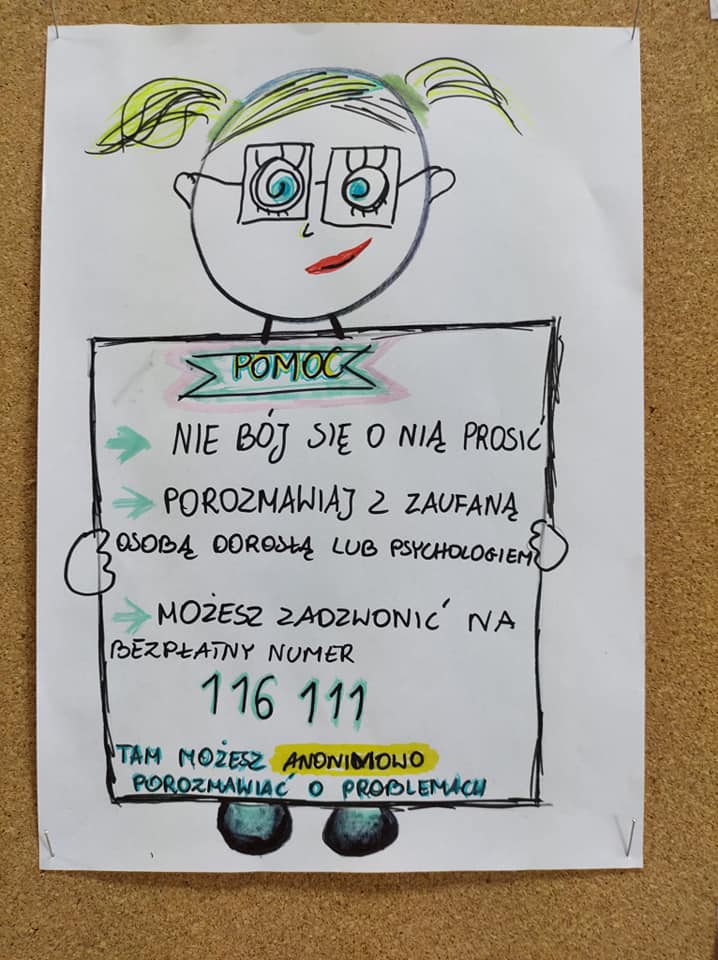 POMOC
NIE BÓJ SIĘ O NIĄ PROSIĆ
POROZMAWIAJ Z ZAUFANĄ
OSOBĄ DOROSŁĄ LUB PSYCHOLOGIEM
MOŻESZ ZADZWONIĆ NA
BEZPŁATNY NUMER
116 111
TAM MOŻESZ ANONIMOWO
POROZMAWIAĆ O PROBLEMACH